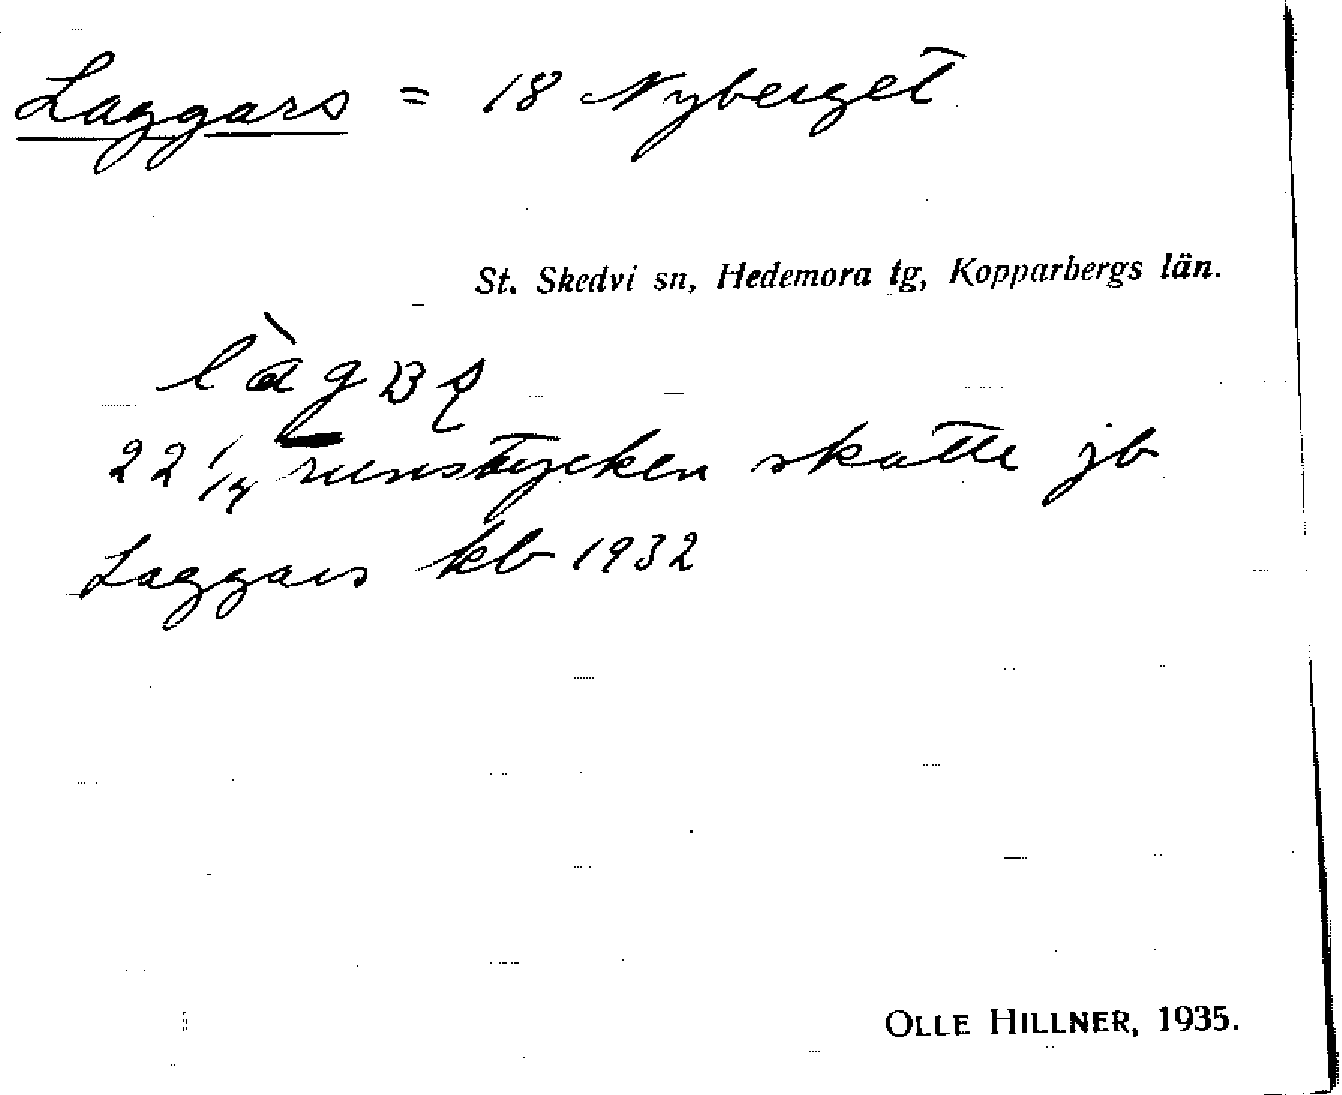 Laggars = 18 Nyberget
St. Skedvi sn, Hedemora tg, Kopparbergs län.
22 1/4 runstycken skatte jb
Laggars kb 1932
OLLE HILLNER, 1935.